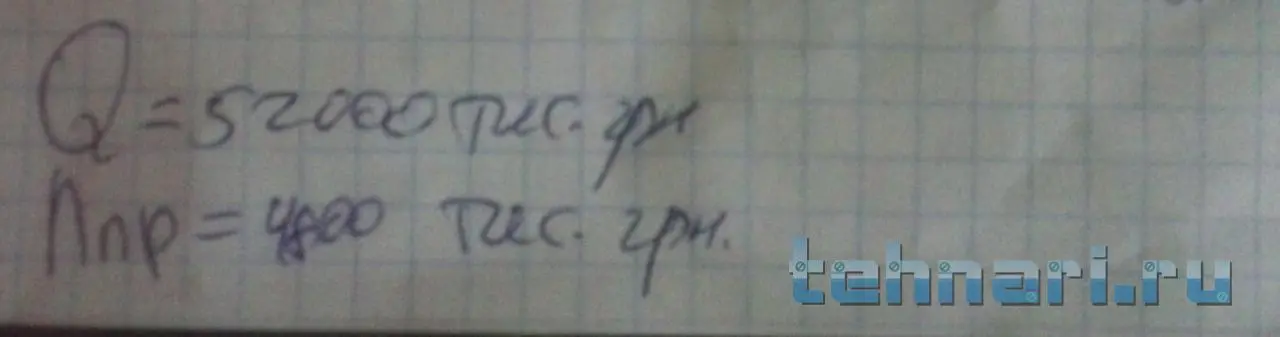 Q = 52000 тис. грн
Ппр = 4800 тис. грн.
tehnari.ru